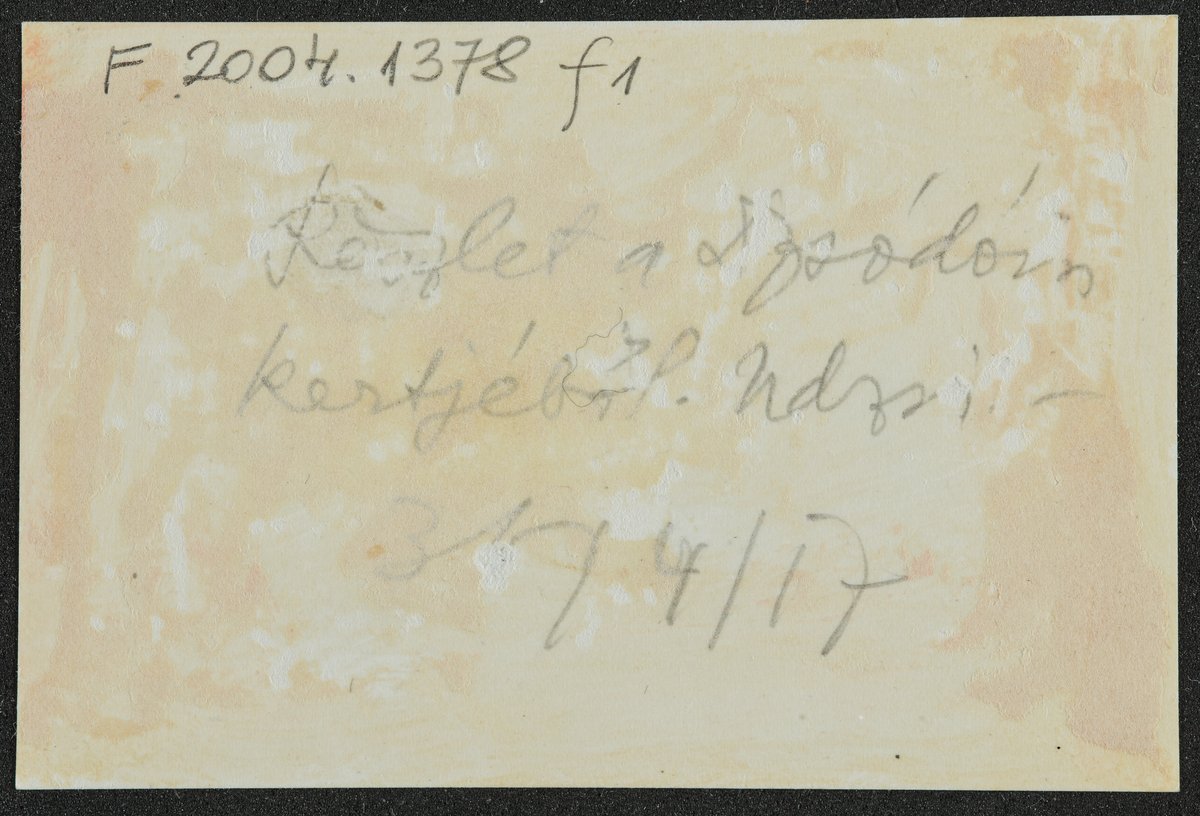 F. 2004. 1378 f 1
Részlet a Dzsódóin
kertjéből. Udzsi. –
31/4/17